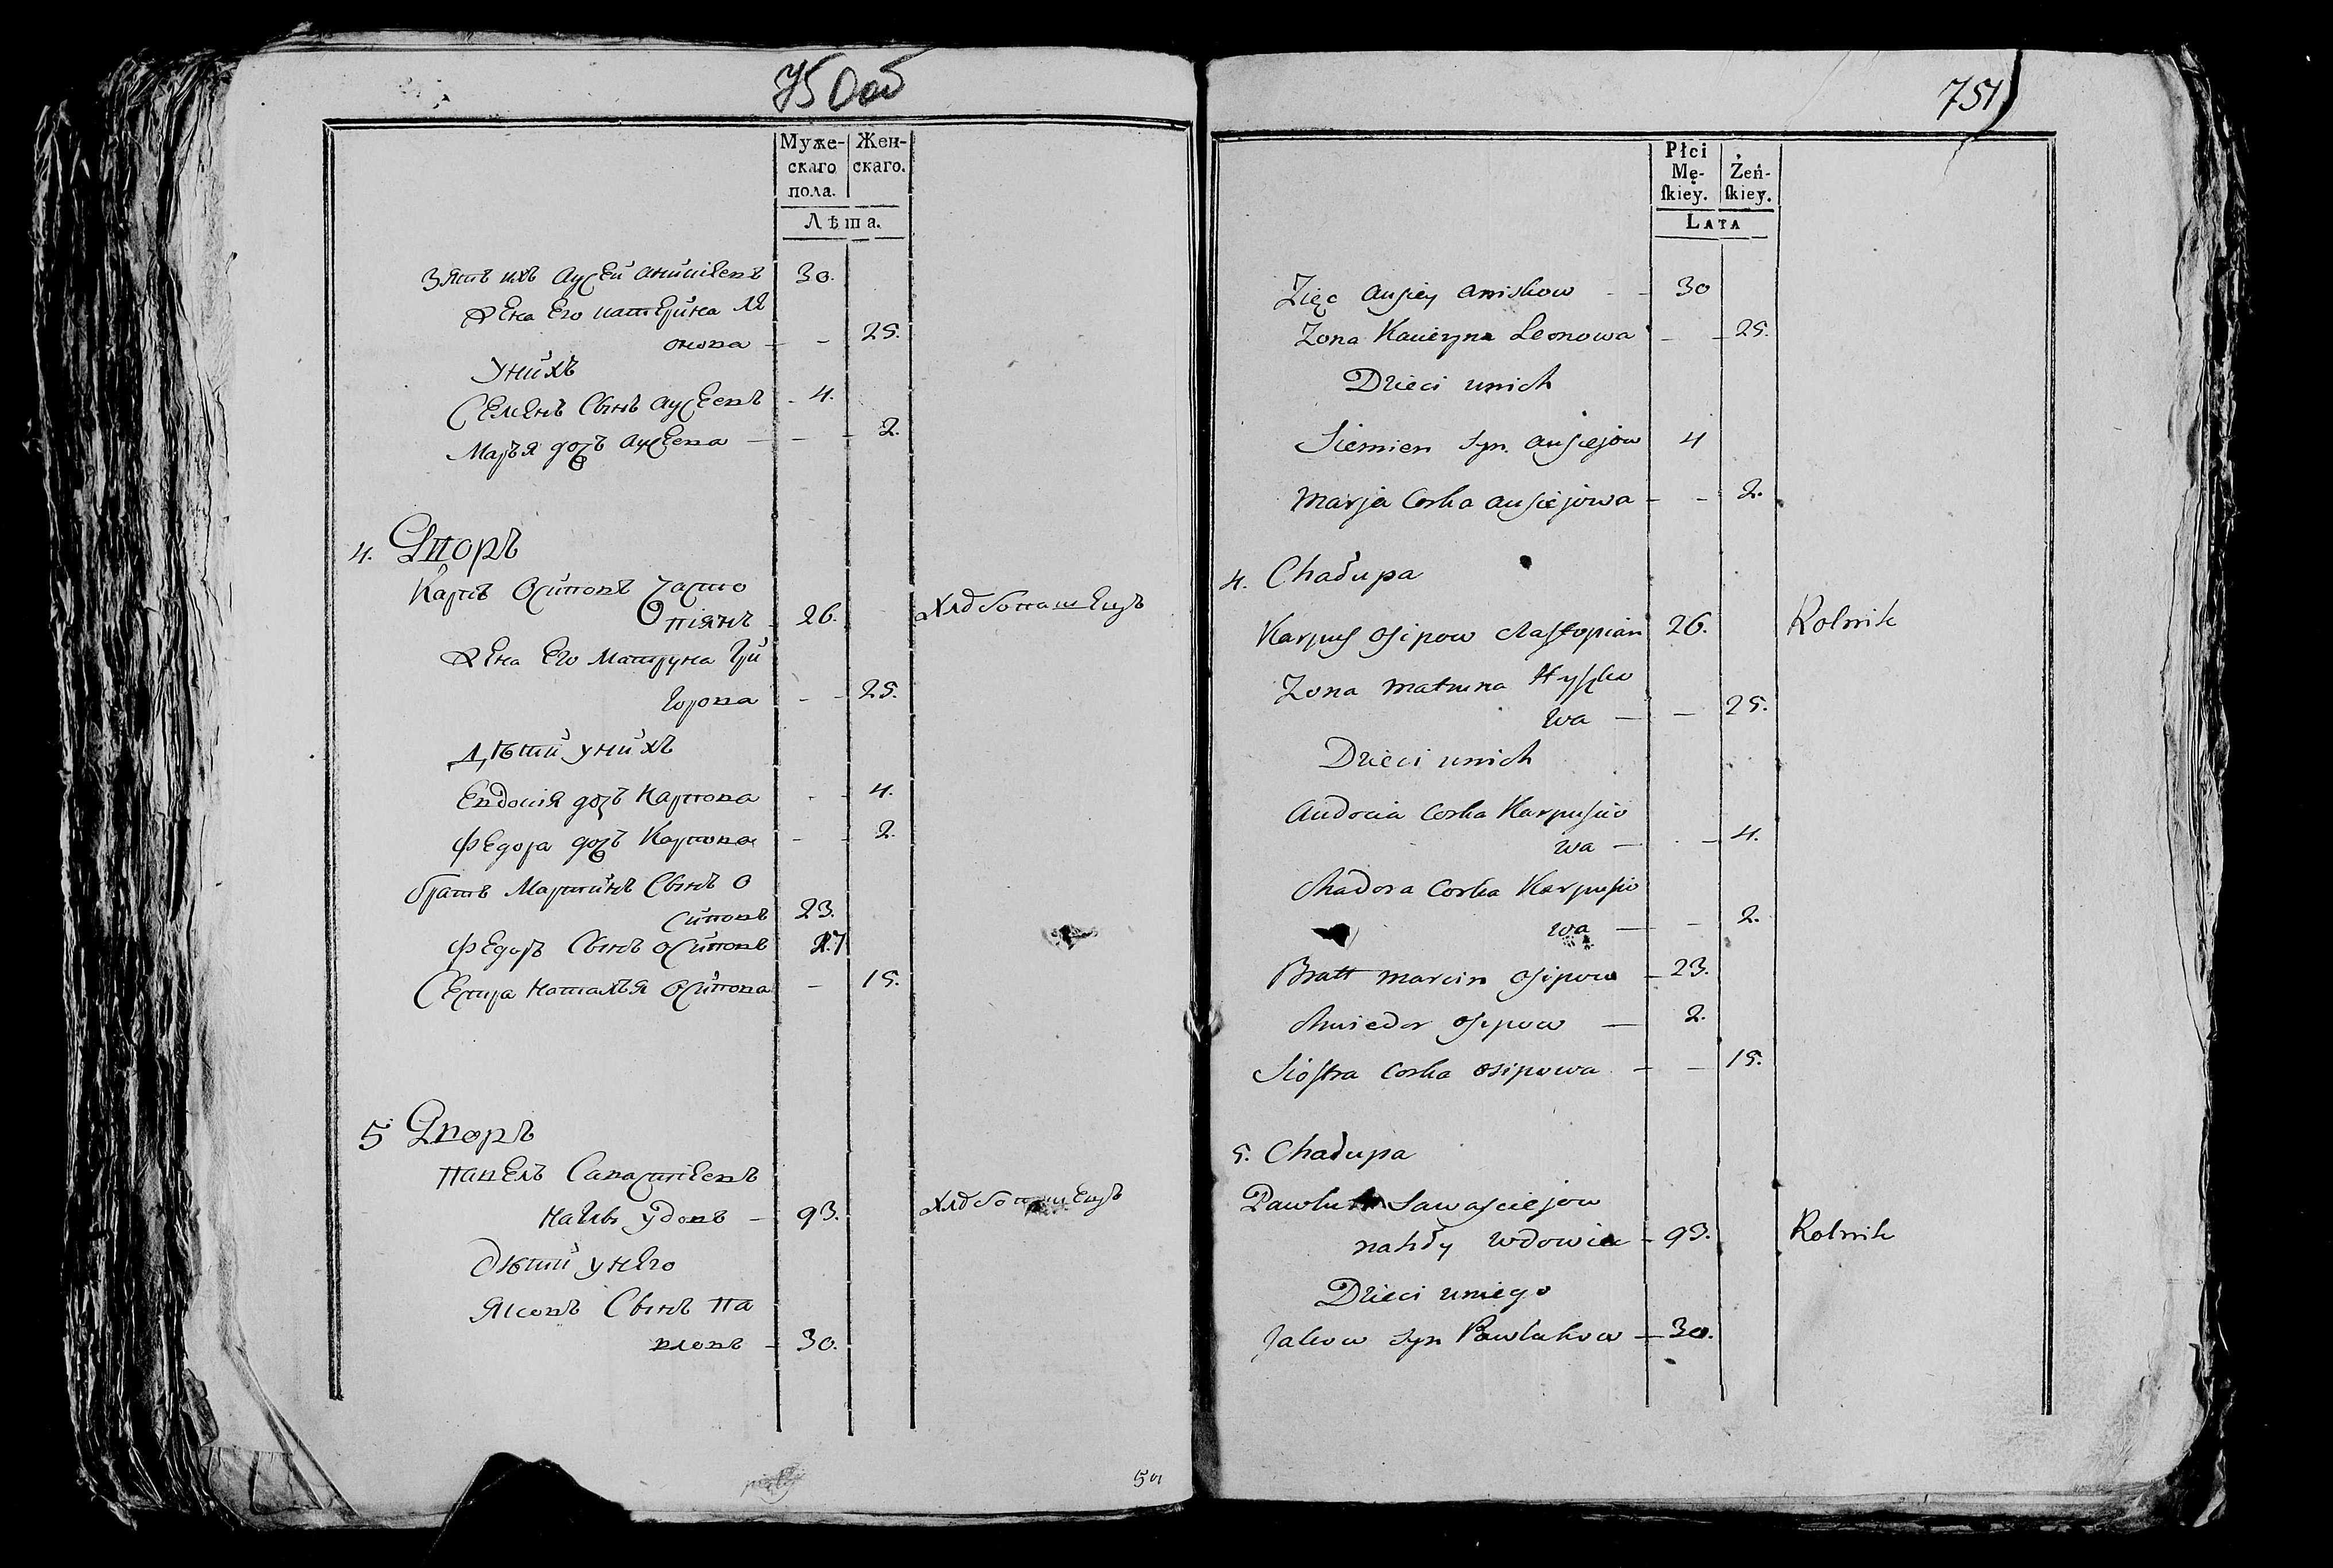 750об
Муже-
скаго
пола.
Жен-
скаго.
Лѣта.
Зять ихъ Аусей Анишкевъ 30.
Жена Его Катерина Ле
онова - - 25.
У нихъ
Семенъ Сынъ Аусеевъ - 4.
Марья дочъ Аусеева - - - 2.
4. Дворъ
Карпъ Осиповъ Часто
піянъ 26. Хлѣбопашецъ
Жена Его Матруна Гри
горова - - 25.
Дѣти у нихъ
Евдокія дочъ Карпова - - 4.
Федора дочъ Карпова - - 2.
братъ Мартинъ Сынъ О
сиповъ 23.
Федоръ Сынъ Осиповъ
Сестра Наталья Осипова - 15.
5 Дворъ
Павелъ Савастіевъ
удовъ - 93. Хлѣбопашецъ
Дѣти у него
Яковъ Сынъ Па
вловъ - 30.
751
Płci
Mę-
skiey.
Żeń-
skiey.
LATA
Zięc Ausiey Aniskow - - 30
Zona Kacieryna Leonowa - - 25.
Dzieci unich
Siemien Syn Ausiejow 4
Marja Corka Ausiejowa - - 2.
4. Chałupa
Karpus Osipow Czastopian 26. Rolnik
Zona Matruna Hryszko
wa - - 25.
Dzieci unich
Audocia Corka Karpusio
wa - - - 4.
Chadora Corka Karpusio
wa - - 2.
Bratt Marcin Osipow - 23.
Chwiedor Osipow - 2.
Siostra Corka Osipowa - - 15.
5. Chałupa
Sawasciejow
wdowiec - 93. Rolnik
Dzieci uniego
Jakow Syn Pawlukow - 30.